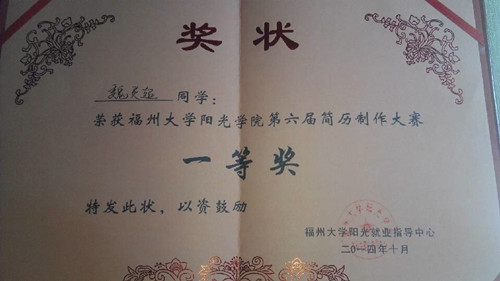 奖状
同学：
荣获福州大学阳光学院第六届简历制作大赛
一等奖
特发此状，以资鼓励
福州大学阳光就业指导中心
二〇一四年十月